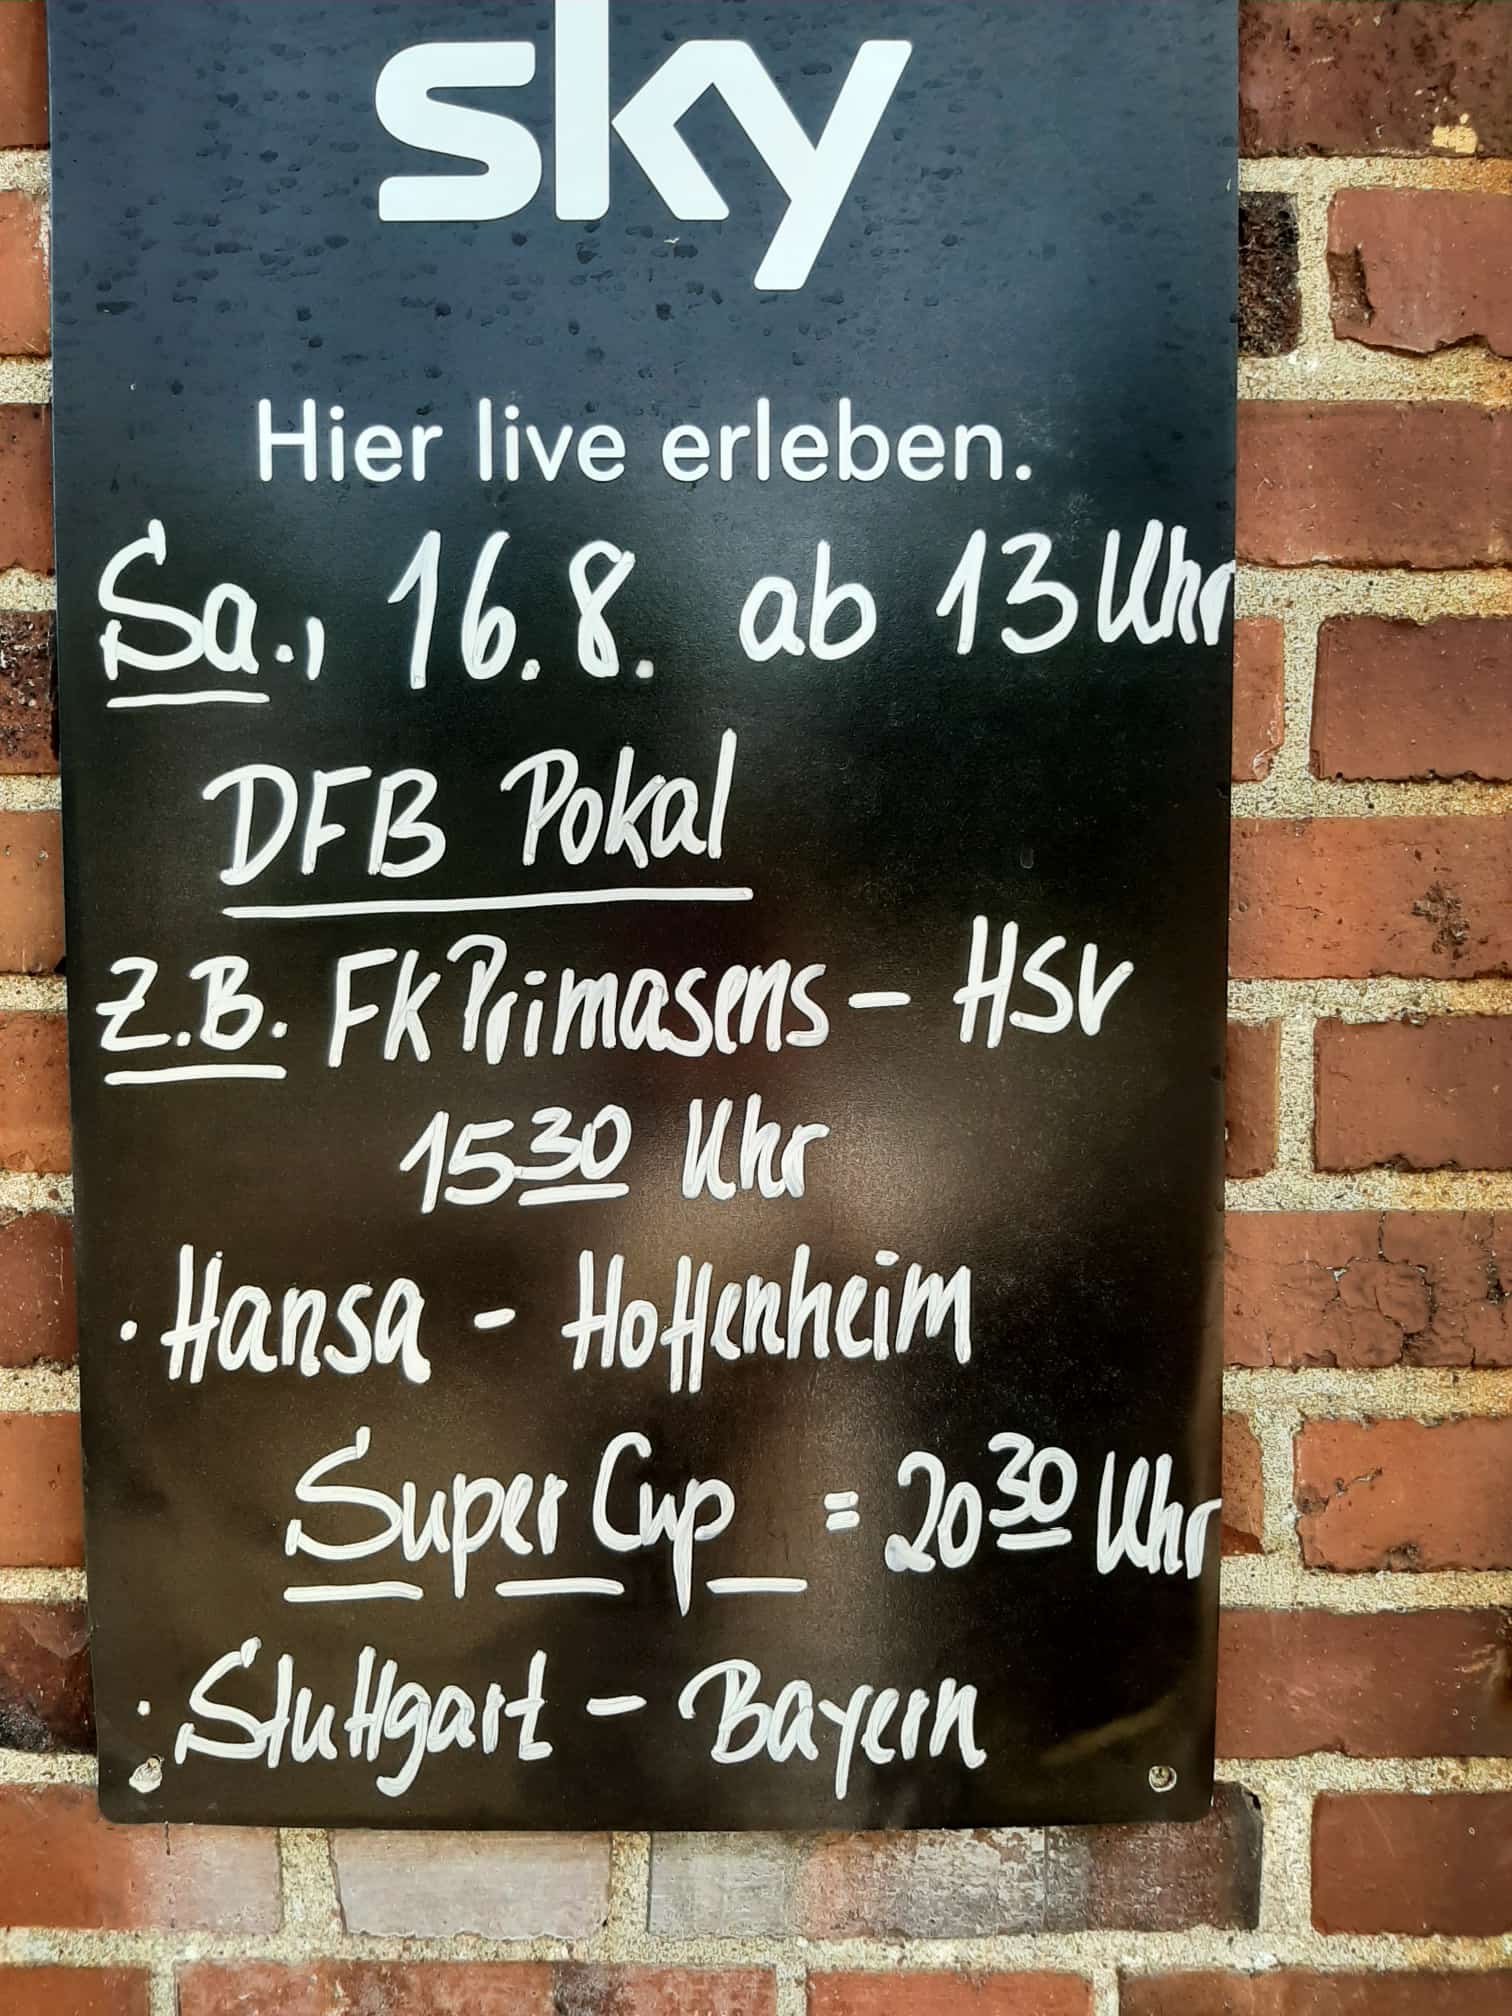 sky
Hier live erleben.
Sa., 16.8. ab 13 Uhr
DFB Pokal
Z.B. FK Primasens - HSV
15 30 Uhr
· Hansa - Hoffenheim
Super Cup = 20 30 Uhr
· Stuttgart - Bayern